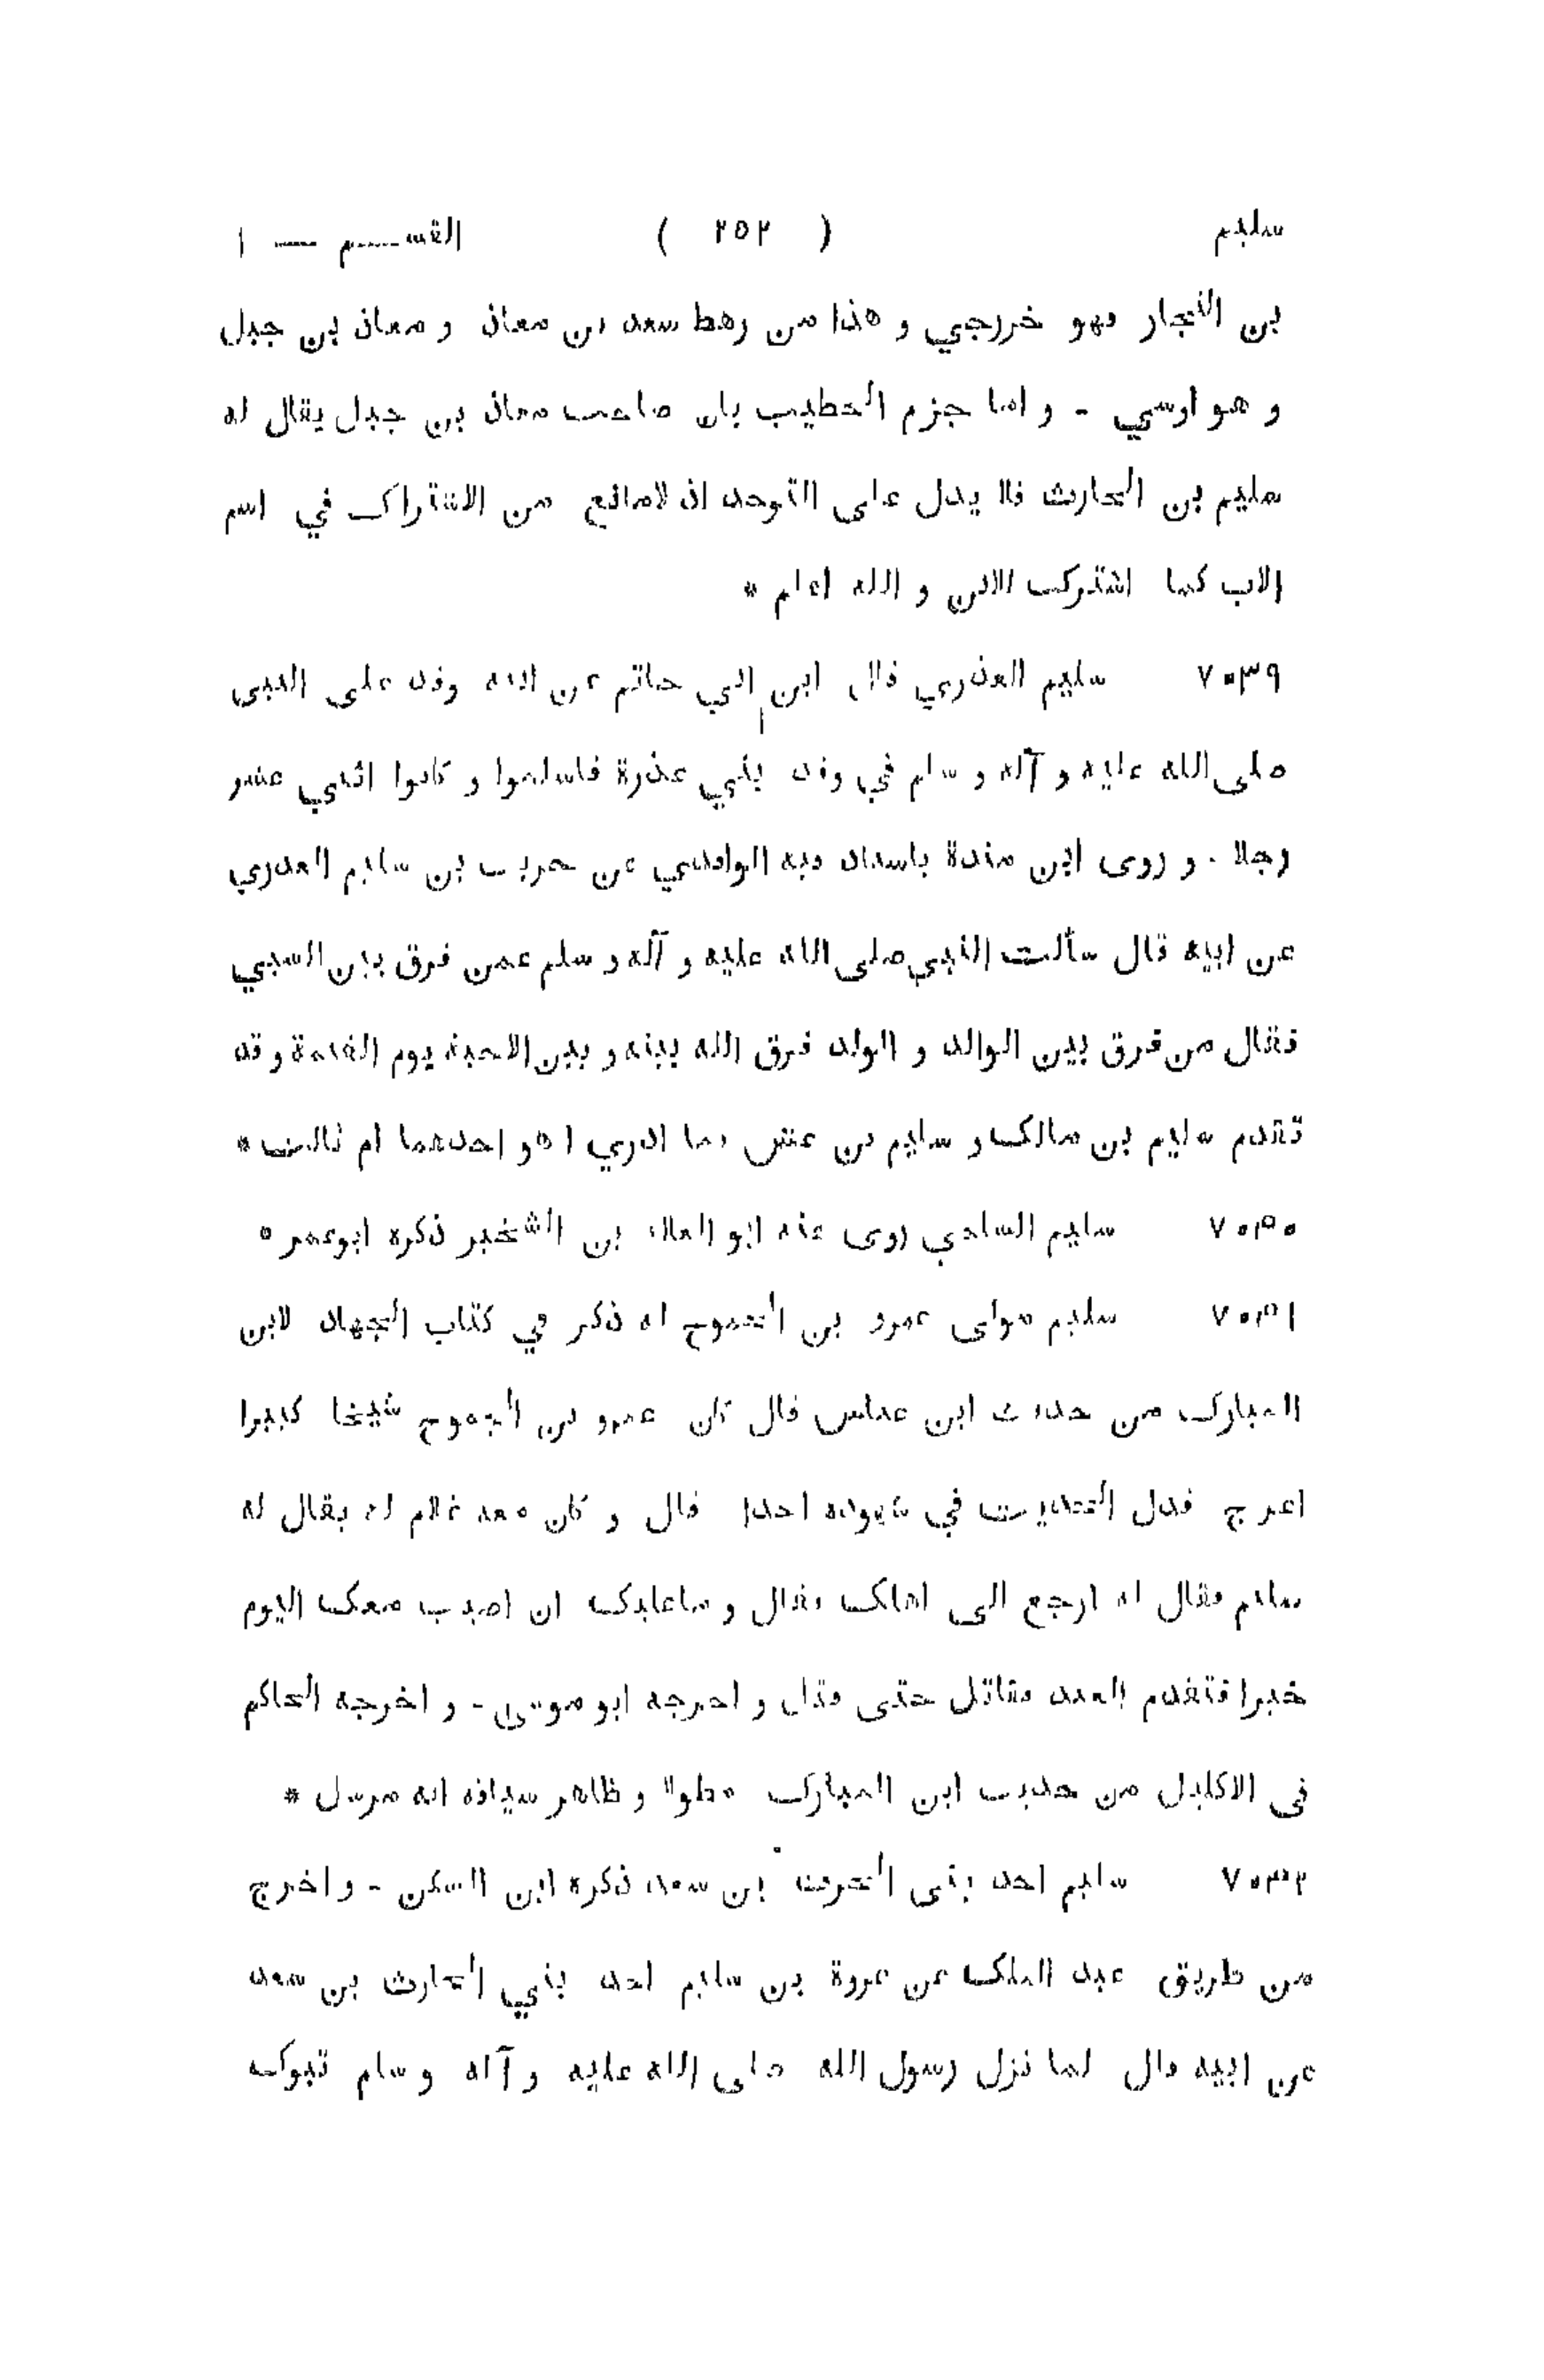 سليم ( ٢٥٢ ) القسم — ١
بن النجار فهو خزرجي و هذا من رهط سعد بن معاذ و معاذ بن جبل
و هو اوسي - و اما جزم الخطيب بان صاحب معاذ بن جبل يقال له
سليم بن الحارث فلا يدل على التوحد اذ لامانع من الاشتراك في اسم
الاب كما اشترك الابن و الله اعلم *
سليم العذري قال ابن ابي حاتم عن ابيه وفد على النبى
صلى الله عليه و آله و سلم في وفد بني عذرة فاسلموا و كانوا اثني عشر
رجلا . و روى ابن مندة باسناد فيه الواقدي عن حريث بن سليم العذري
عن ابيه قال سألت النبي صلى الله عليه و آله و سلم عمن فرق بين السبي
فقال من فرق بين الوالد و الولد فرق الله بينه و بين الاحبة يوم القيامة و قد
تقدم سليم بن مالك و سليم بن عش فما ادري ا هو احدهما ام ثالث *
سليم السلمي روى عنه ابو العلاء بن الشخير ذكره ابوعمر *
سليم مولى عمرو بن الجموح له ذكر في كتاب الجهاد لابن
المبارك من حديث ابن عباس قال كان عمرو بن الجموح شيخا كبيرا
اعرج فذكر الحديث في شهوده احدا قال و كان معه غلام له يقال له
سليم فقال له ارجع الى اهلك فقال و ما عليك ان اصيب معك اليوم
خيرا فتقدم العبد فقاتل حتى قتل و اخرجه ابو موسى - و اخرجه الحاكم
فى الاكليل من حديث ابن المبارك مطولا و ظاهر سياقه انه مرسل *
سليم احد بنى الحرث بن سعد ذكره ابن السكن - و اخرج
من طريق عبد الملك عن عروة بن سليم احد بني الحارث بن سعد
عن ابيه قال لما نزل رسول الله صلى الله عليه و آله و سلم تبوك